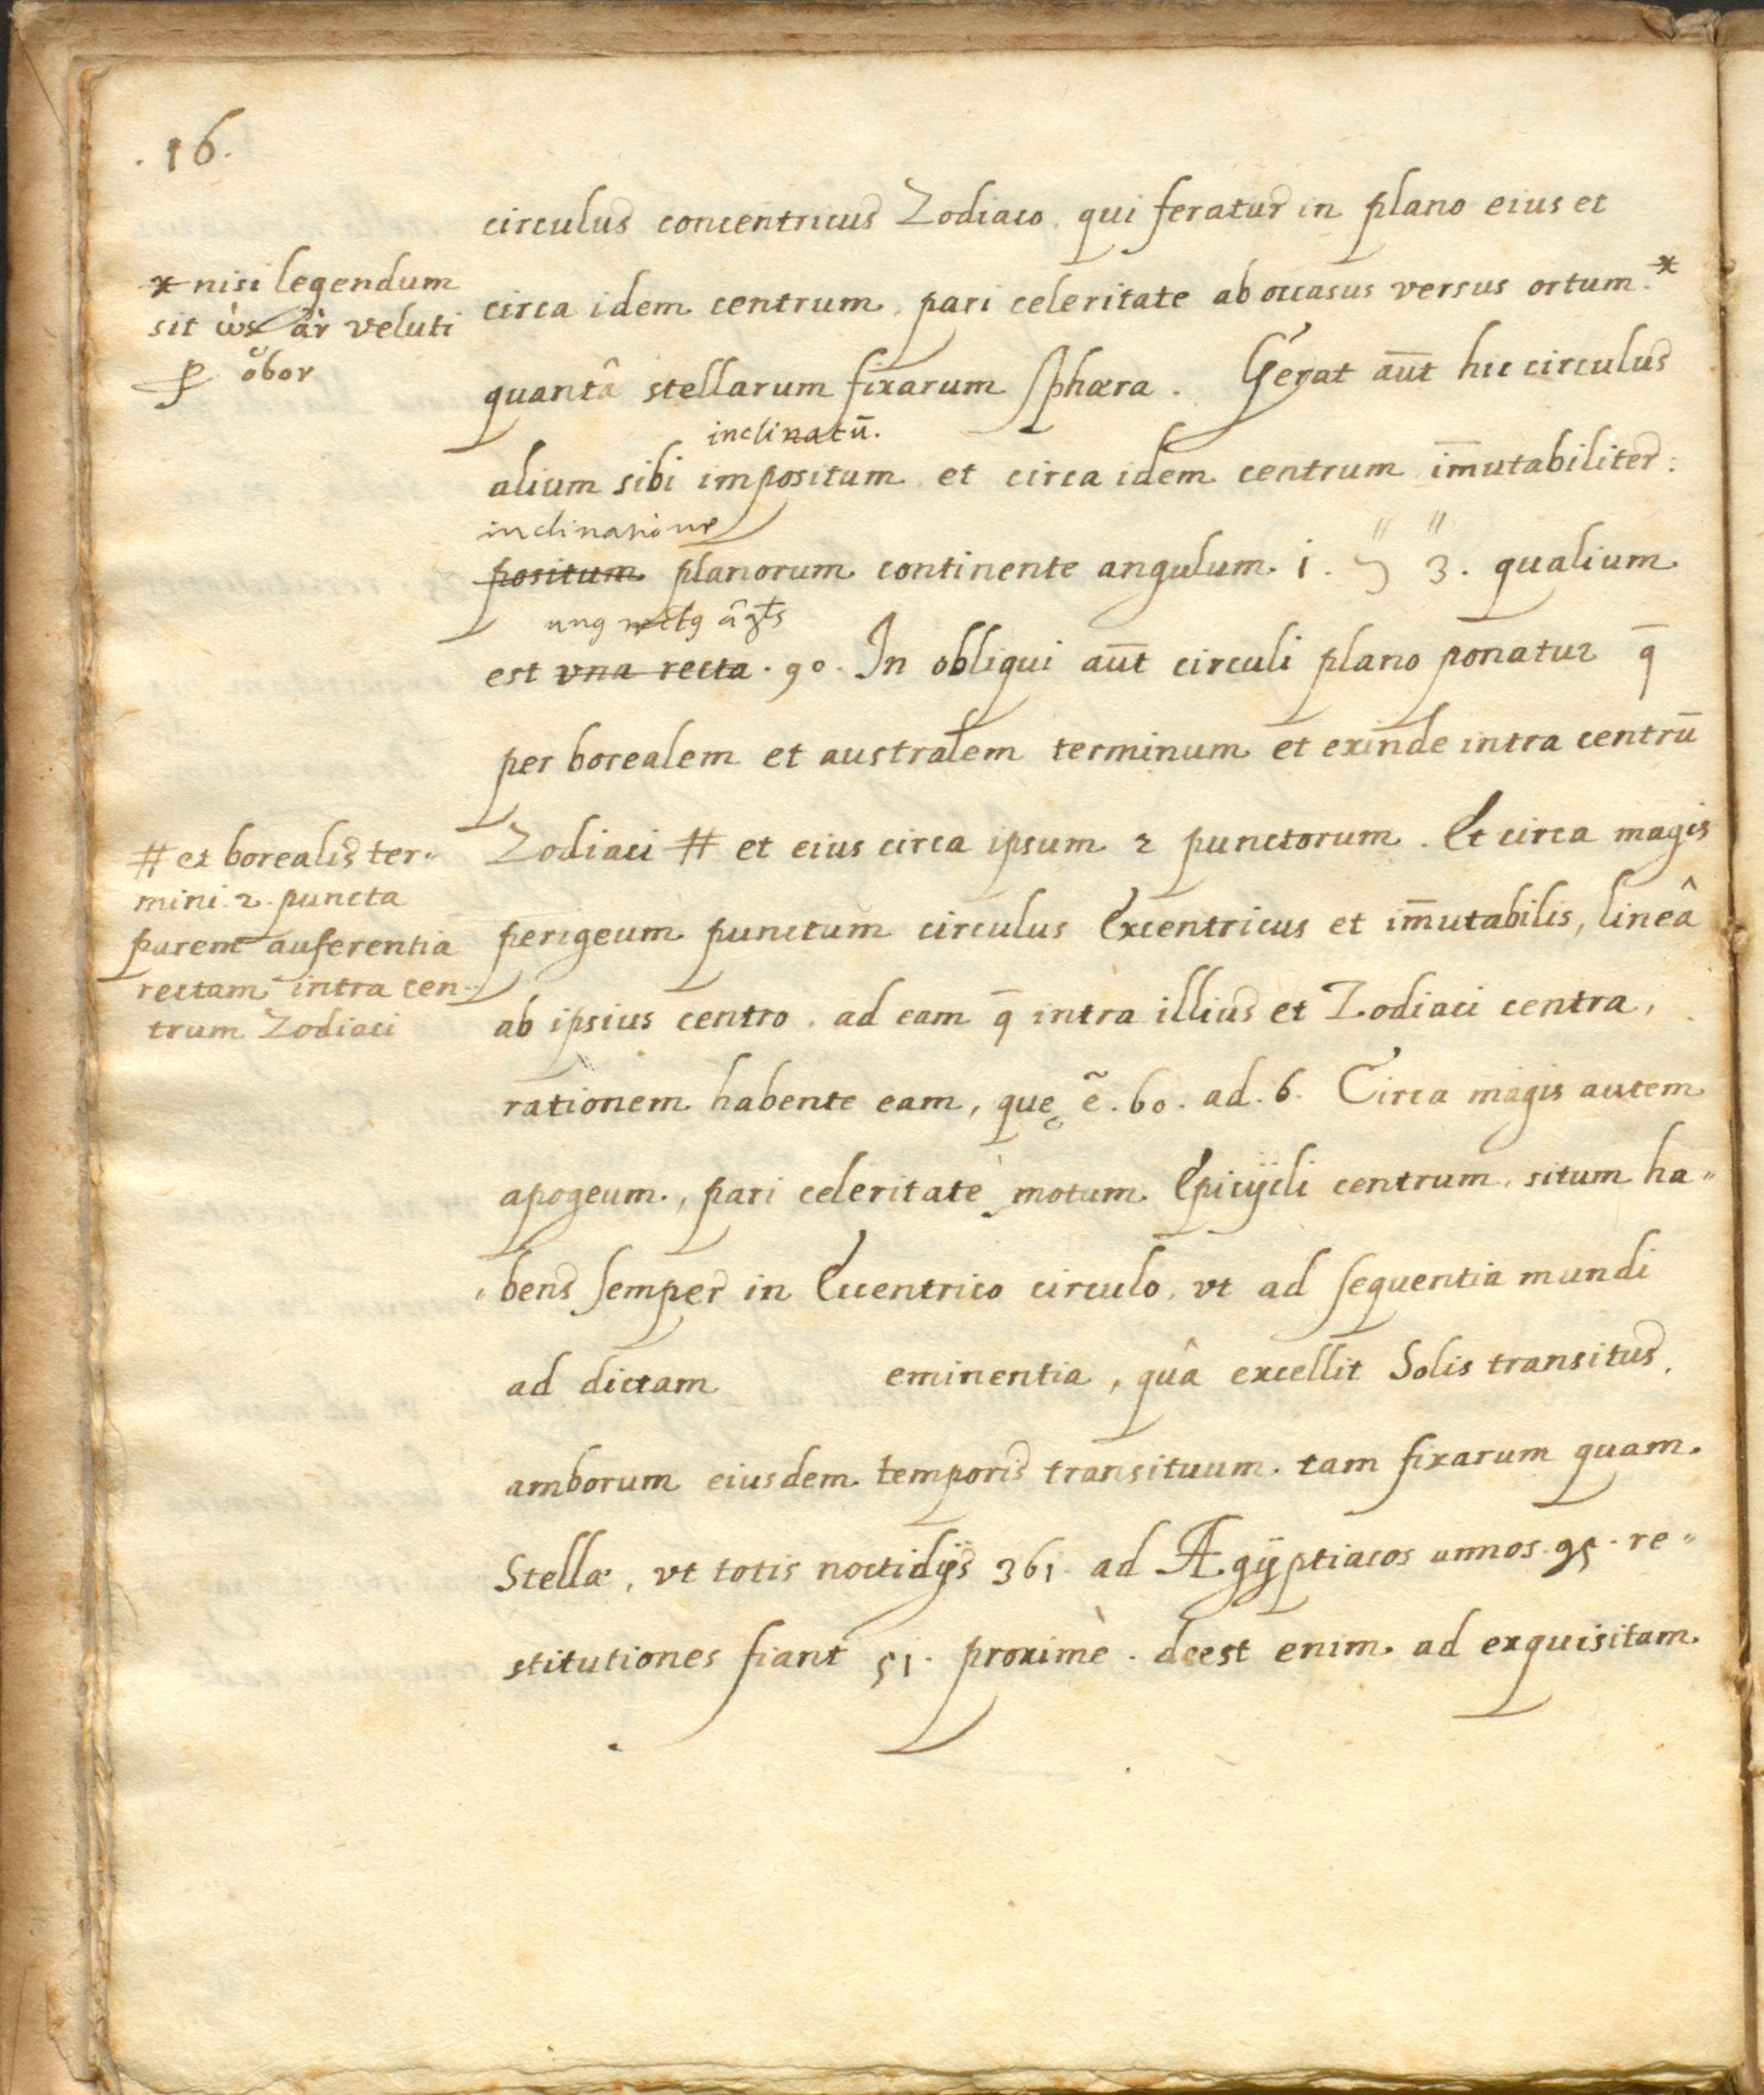 .16.
circulus concentricus Zodiaco, qui feratur in plano eius et
circa idem centrum, pari celeritate ab occasus versus ortum.*
quantâ stellarum fixarum sphæra. Gerat aūt hic circulus
inclinatū.
alium sibi impositum et circa idem centrum im̄utabiliter:
inclinatione
positum planorum continente angulum. i. 3. qualium
est vna recta . 90. In obliqui aūt circuli plano ponatur q̄
per borealem et australem terminum et exinde intra centrū
Zodiaci # et eius circa ipsum 2 punctorum. Et circa magis
perigeum punctum circulus Excentricus et im̄utabilis, lineâ
ab ipsius centro, ad eam q̄ intra illius et Zodiaci centra,
rationem habente eam, quę ẽ. 60. ad. 6. Circa magis autem
apogeum., pari celeritate motum Epicÿcli centrum, situm ha"
bens semper in Eccentrico circulo, vt ad sequentia mundi
ad dictam eminentia, quâ excellit Solis transitus,
amborum eiusdem temporis transituum. tam fixarum quam
Stellæ, vt totis noctidijs 361. ad Ægÿptiacos annos. 95. re"
stitutiones fiant 51. proximè. deest enim ad exquisitam
* nisi legendum
sit ὡς ἂν veluti
# et borealis ter"
mini. 2. puncta
parem auferentia
rectam intra cen"
trum Zodiaci